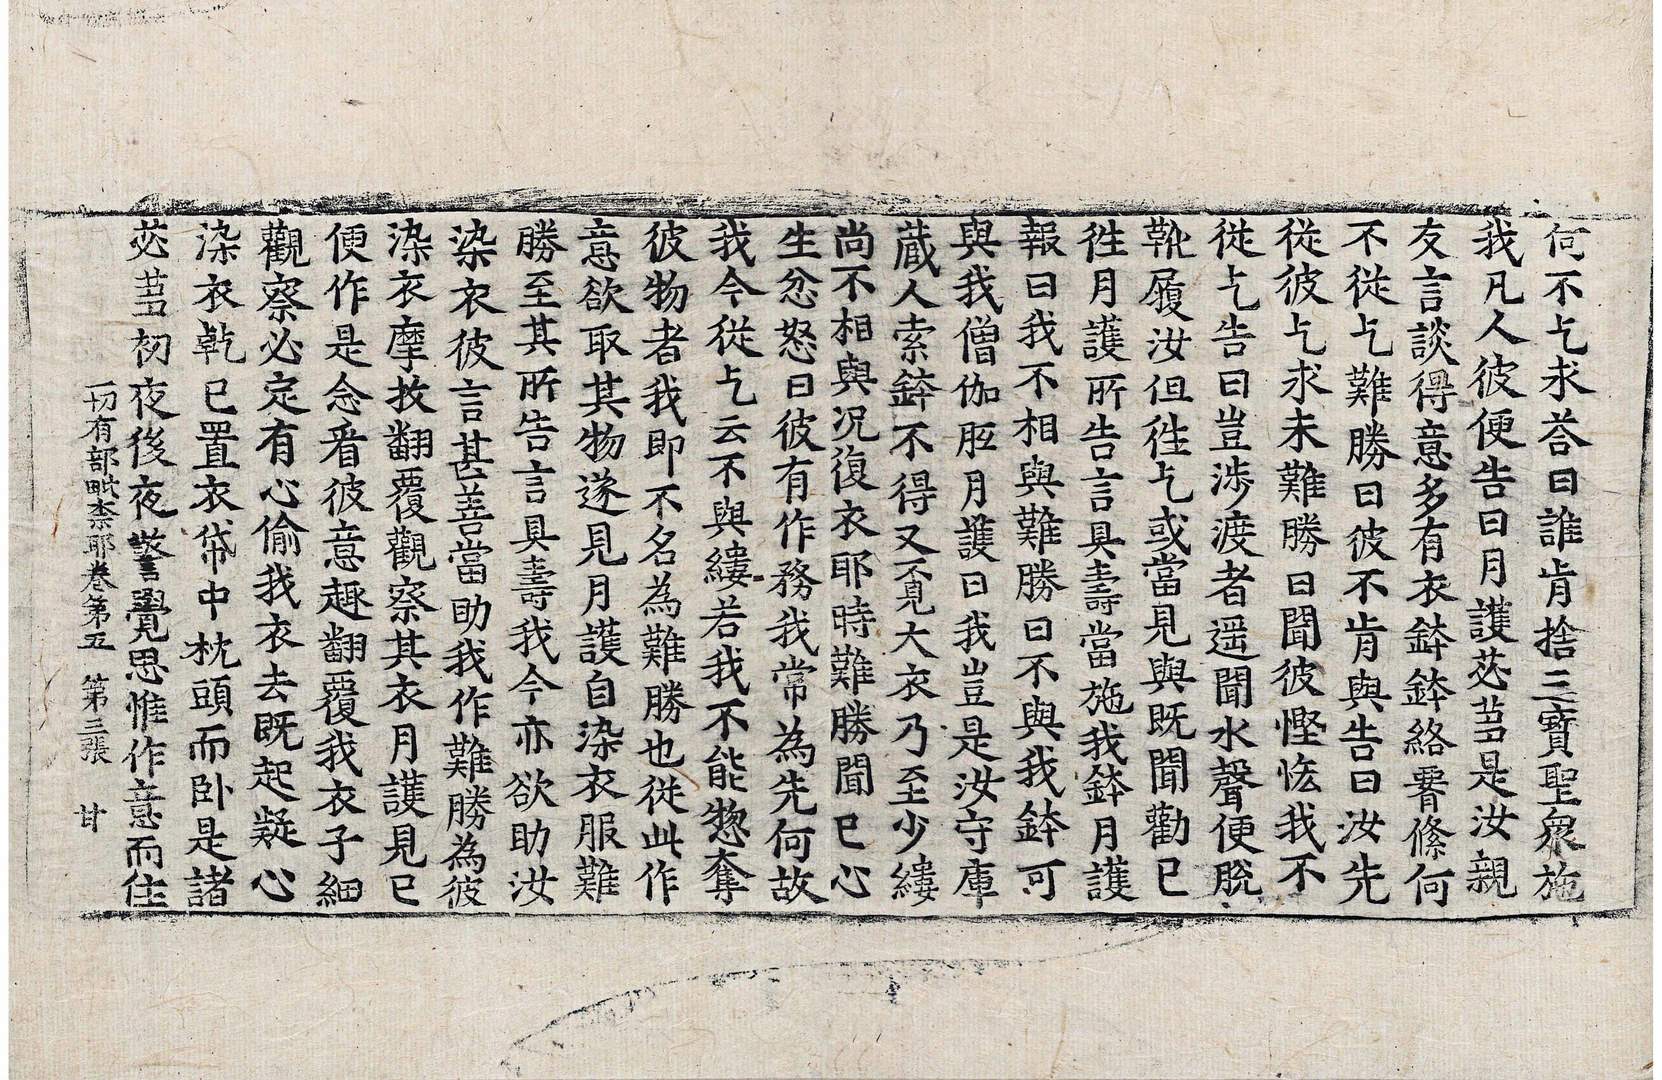 何不乞求荅曰誰肯捨三寶聖衆施
我凡人彼便告曰月護苾蒭是汝親
友言談得意多有衣鉢鉢絡䙅絛何
不從乞難勝曰彼不肯與告曰汝先
從彼乞求未難勝曰聞彼慳悋我不
從乞告曰豈渉渡者遥聞水聲便脫
靴履汝但徃乞或當見與既聞勸已
徃月護所告言具壽當施我鉢月護
報曰我不相與難勝曰不與我鉢可
與我僧伽胝月護曰我豈是汝守庫
蔵人索鉢不得又覔大衣乃至少縷
尚不相與况復衣耶時難勝聞已心
生忿怒曰彼有作務我常為先何故
我今從乞云不與縷若我不能惣奪
彼物者我即不名為難勝也從此作
意欲取其物遂見月護自染衣服難
勝至其所告言具壽我今亦欲助汝
染衣彼言甚善當助我作難勝為彼
染衣摩挍翻覆觀察其衣月護見已
便作是念看彼意趣翻覆我衣子細
觀察必定有心偷我衣去既起疑心
染衣乾已置衣帒中枕頭而卧是諸
苾蒭初夜後夜警覺思惟作意而住
一切有部毗柰耶卷第五 第三張 甘